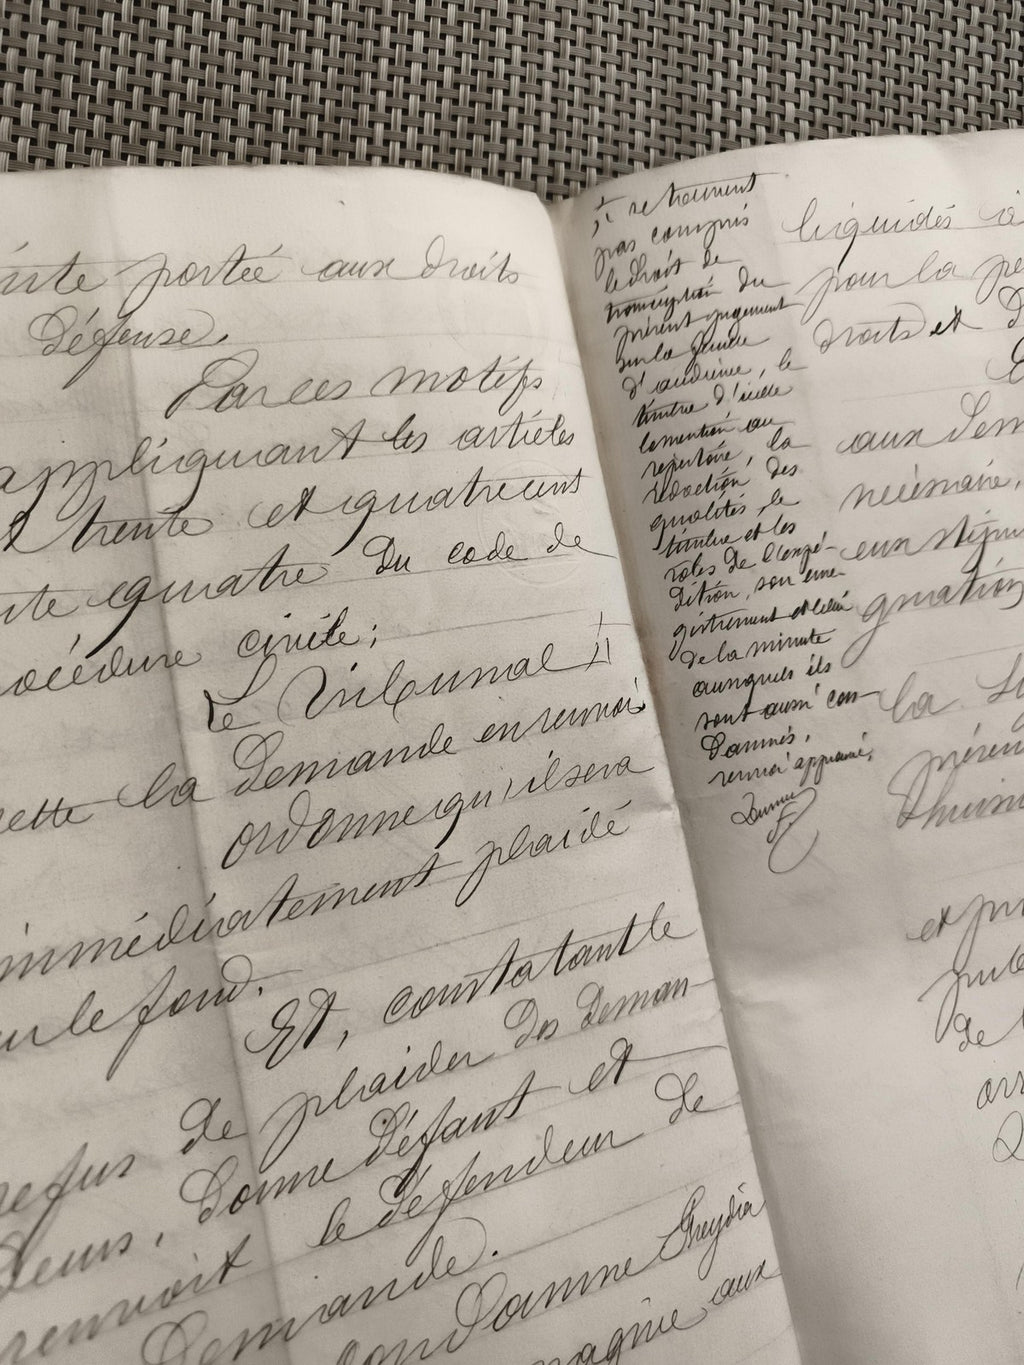 portée aux droits
défense.
Par ces motifs
appliquant les articles
trente et quatre cent
quatre du code de
civile;
Le Tribunal
la demande en renvoi
ordonne qu'il sera
immédiatement plaidé
le fond.
Et, constatant le
refus de plaider des deman-
deurs, donne défaut et
renvoit le défendeur de
demande.
condamne Greydié
aux
et notamment
pas compris
le droit de
transcription du
présent jugement
sur la feuille
d'audience, le
timbre d'icelle
la mention au
répertoire, la
rédaction des
qualités, le
timbre et les
roles de l'expé-
dition, son enre-
gistrement et celui
de la minute
auxquels ils
sont aussi con-
damnés,
renvoi approuvé,
liquidés à
pour la
droits et
aux dem
nécessaire,
gnation
la
et
de